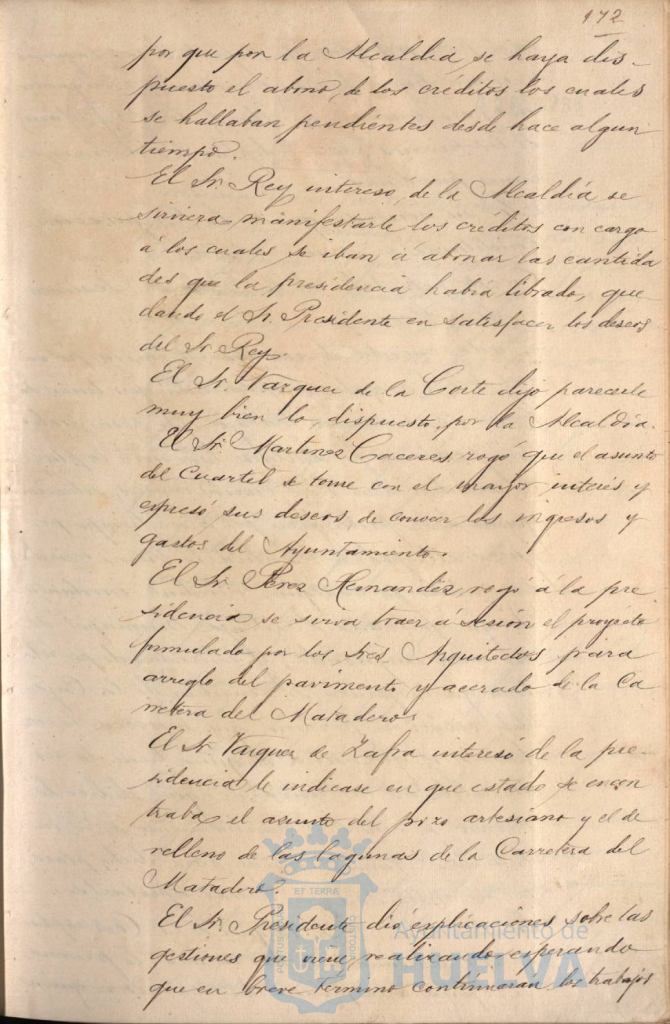 172
por que por la Alcaldia, se haya dis-
puesto el abono, de los créditos los cuales
se hallaban pendientes desde hace algun
tiempo.
El Sr. Rey interesó, de la Alcaldía se
sirviera manifestarle los créditos con cargo
á los cuales se iban á abonar las cantida
des que la presidencia habia librado, que
dando el Sr. Presidente en satisfacer los deseos
del Sr. Rey.
El Sr. Vazquez de la Corte dijo parecerle
muy bien lo dispuesto por la Alcaldía.
El Sr. Martinez Caceres, rogó que el asunto
del Cuartel se tome con el mayor interés y
expresó sus deseos, de conocer los ingresos y
gastos del Ayuntamiento.
El Sr. Perez Hernandez, rogó á la pre
sidencia se sirva traer á sesión el proyecto
formulado por los tres Arquitectos para
arreglo del pavimento y acerado de la Ca
rretera del Matadero.
El Sr. Vazquez de Zafra interesó de la pre-
sidencia le indicase en que estado se encon
traba el asunto del pozo artesiano y el de
relleno de las lagunas de la Carretera del
Matadero.
El Sr. Presidente dió explicaciones sobre las
gestiones que viene realizando esperando
que en breve termino continuaran los trabajos
Ayuntamiento de
HUELVA
ET TERRA
PORTUS MARIS
CUSTODIA